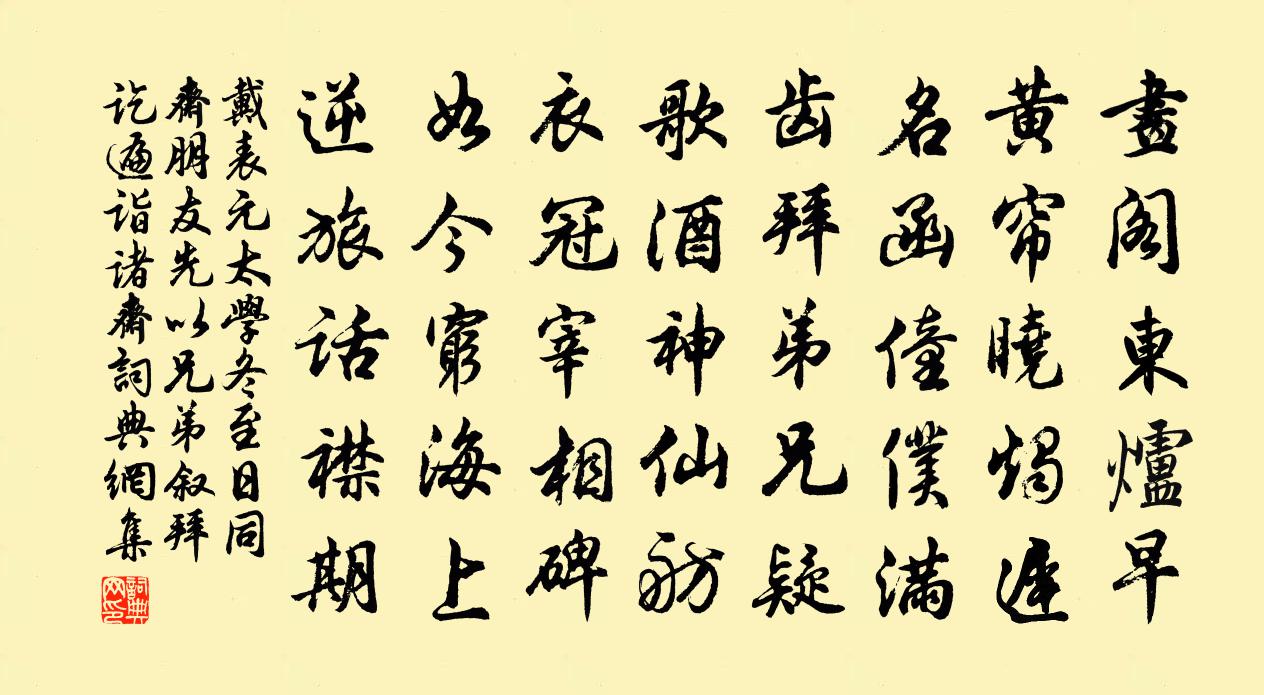 畫閣東爐早
黄帘曉燭遲
名函僮僕滿
齿拜弟兄疑
歌酒神仙舫
衣冠宰相碑
如今窮海上
逆旅話襟期
戴表元太學冬至日同
齋朋友先以兄弟叙拜
讫遍诣诸齋詞典網集
詞典网印